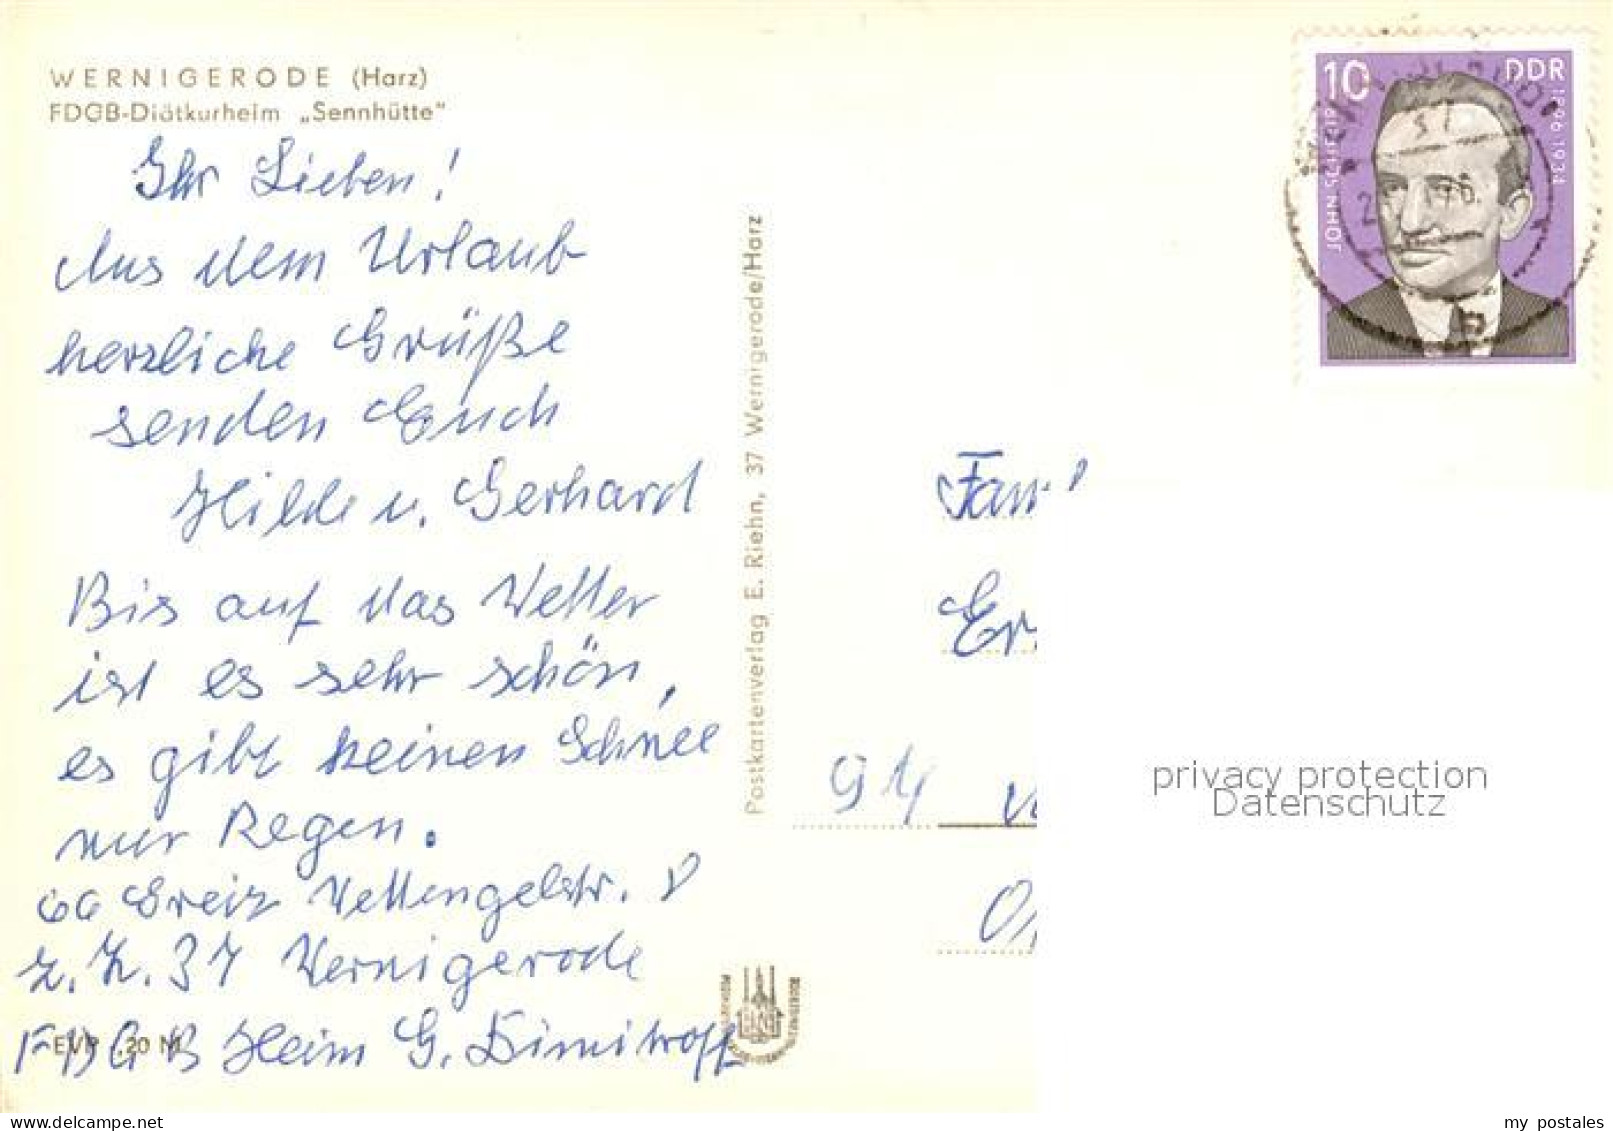 WERNIGERODE (Harz)
FDGB-Diätkurheim „Sennhütte"
Ihr Lieben!
Aus dem Urlaub
herzliche Grüße
senden Euch
Hilde u. Gerhard
Bis auf das Wetter
ist es sehr schön,
es gibt keinen Schnee
nur Regen.
66 Greiz
z. Z. 37 Wernigerode
FDGB Heim G. Dimitroff
EVP ,20 M
Postkartenverlag E. Riehn, 37 Wernigerode/Harz
10
DDR
1896-1934
JOHN
Fam
Er
privacy protection
Datenschutz
my postales